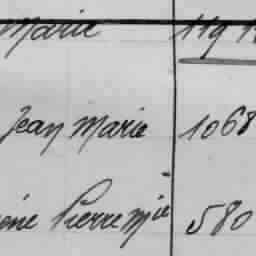 Marie 119
Jean Marie 1068
Pierre Mie 580